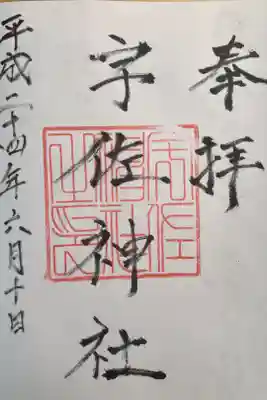 奉拝
宇佐神社
平成二十四年六月十日